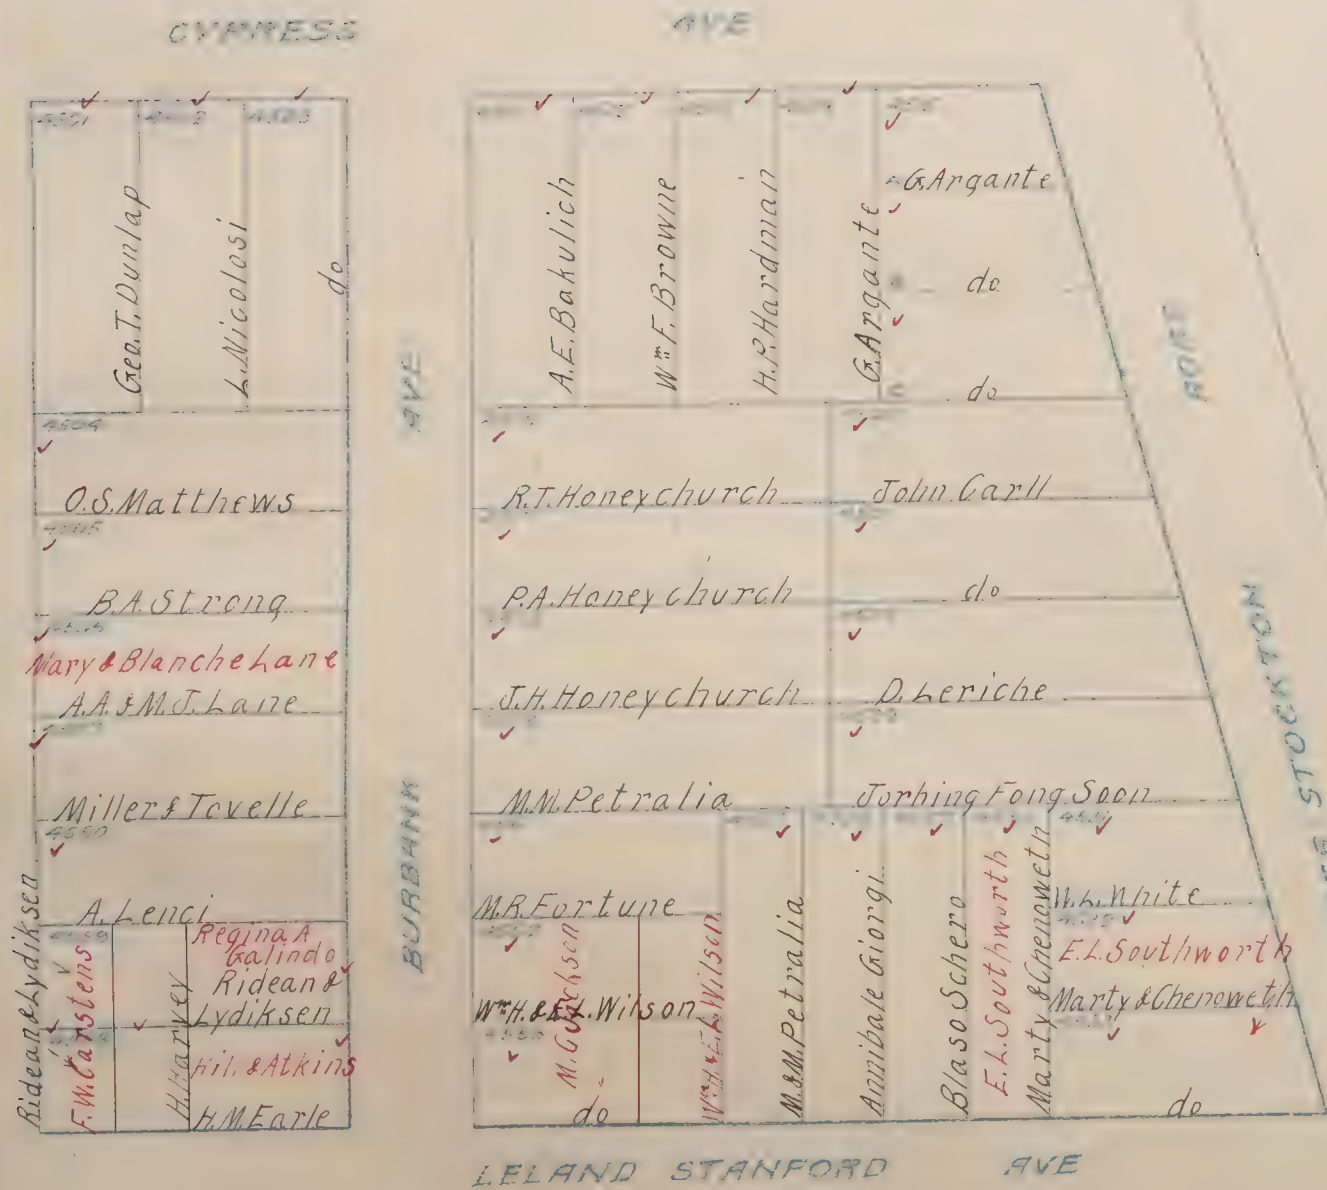 CYPRESS AVE
4501
4502
4503
Geo. T. Dunlap
L. Nicolosi
do
4504
O.S. Matthews
4505
B.A. Strong
Mary & Blanche Lane
A.A. & M.J. Lane
Miller & Tovelle
4560
A. Lenci
Ridean & Lydiksen
F.W. Carstens
H. Harvey
Regina A
Galindo
Ridean &
Lydiksen
Hil. & Atkins
H.M. Earle
BURBANK AVE
A.E. Bakulich
Wm F. Browne
H.P. Hardman
G. Argante
G. Argante
do
do
R.T. Honeychurch
John Carll
P.A. Honeychurch
do
J.H. Honeychurch
D. Leriche
M.M. Petralia
Jorhing Fong Soon
M.R. Fortune
Wm H. & E.L. Wilson
M. G. Jackson
do
Wm H. & E.L. Wilson
M. & M. Petralia
Annibale Giorgi
Blaso Schero
E.L. Southworth
Marty & Chenoweth
W.L. White
E.L. Southworth
Marty & Chenoweth
do
STOCKTON
LELAND STANFORD AVE